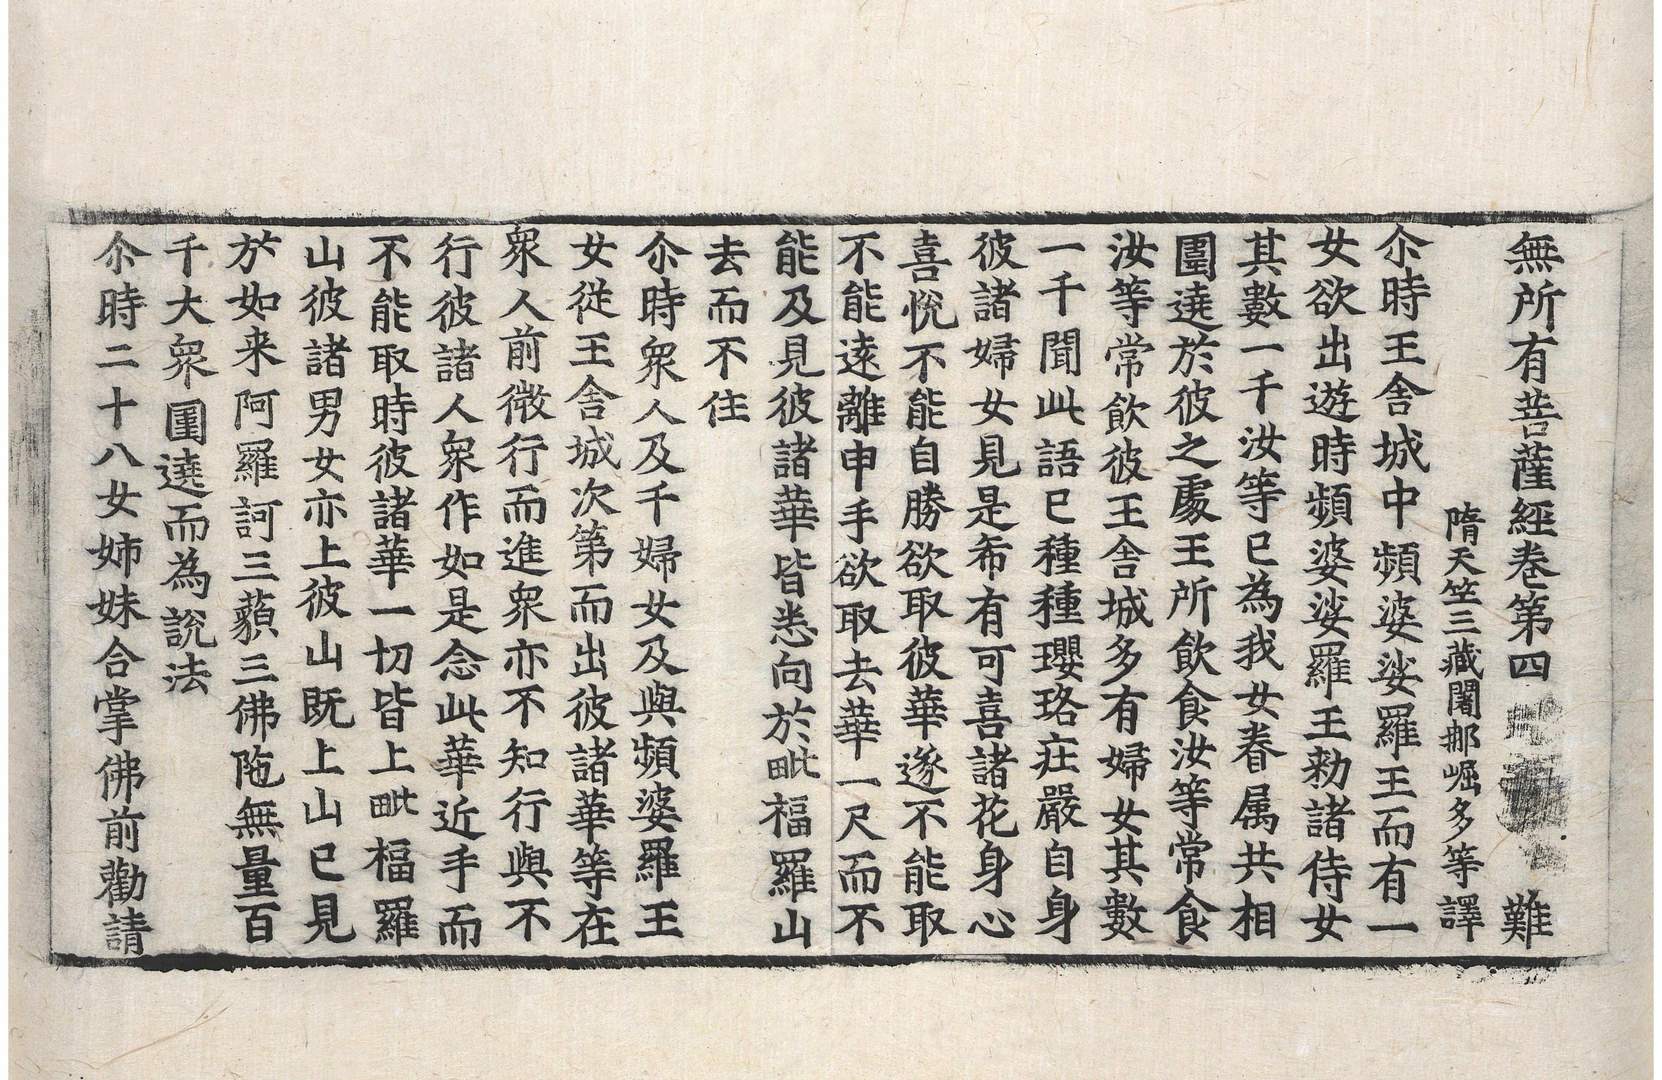 無所有菩薩經卷第四 難
隋天竺三藏闍那崛多等譯
尒時王舍城中頻婆娑羅王而有一
女欲出遊時頻婆娑羅王勑諸侍女
其數一千汝等已為我女眷属共相
圍遶於彼之處王所飲食汝等常食
汝等常飲彼王舍城多有婦女其數
一千聞此語已種種瓔珞庄嚴自身
彼諸婦女見是希有可喜諸花身心
喜悅不能自勝欲取彼華遂不能取
不能遠離申手欲取去華一尺而不
能及見彼諸華皆悉向於毗福羅山
去而不住
尒時衆人及千婦女及與頻婆羅王
女從王舍城次第而出彼諸華等在
衆人前微行而進衆亦不知行與不
行彼諸人衆作如是念此華近手而
不能取時彼諸華一切皆上毗福羅
山彼諸男女亦上彼山既上山已見
於如来阿羅訶三藐三佛陁無量百
千大衆圍遶而為說法
尒時二十八女姉妹合掌佛前勸請